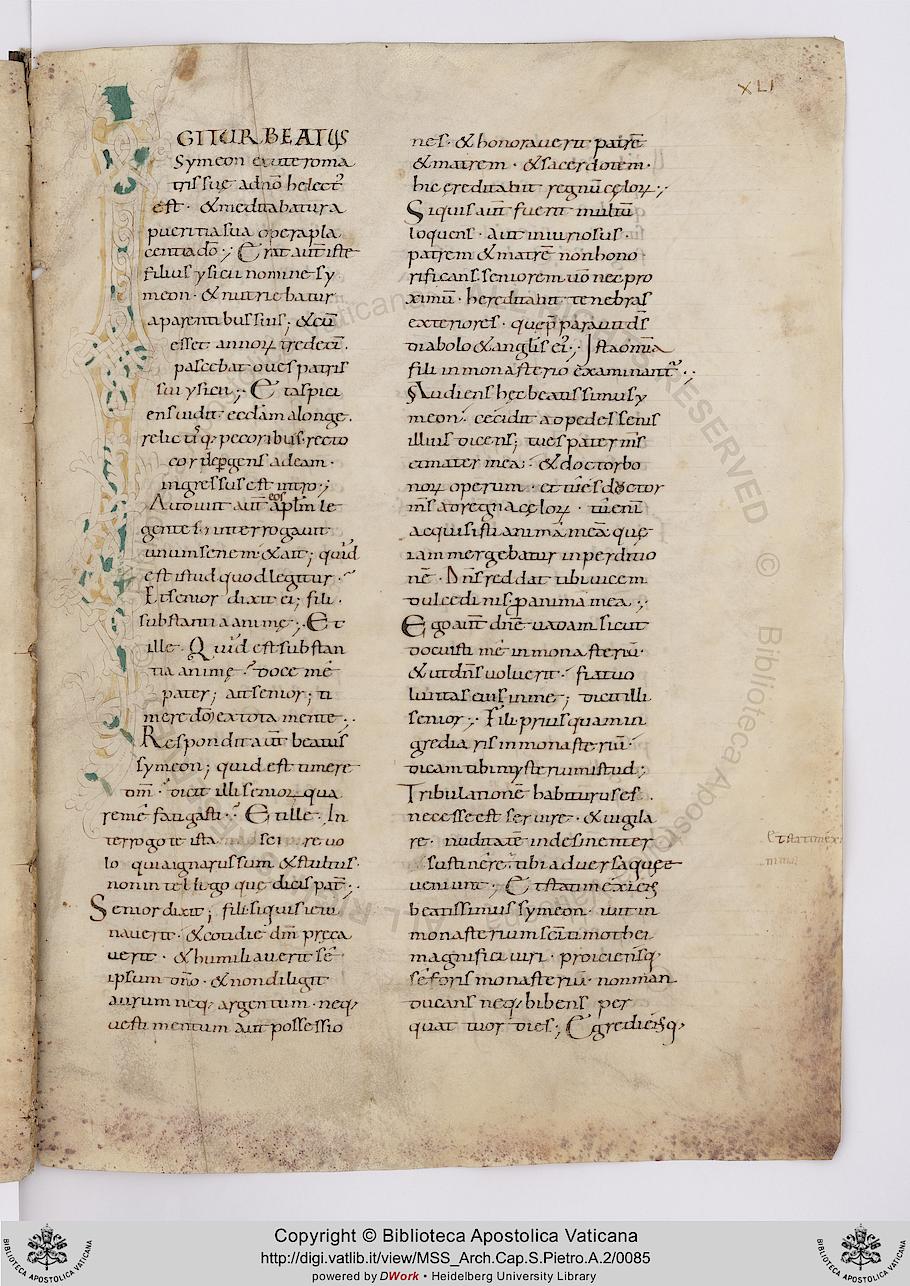 XLI
GITUR BEATUS
Symeon exuteroma
trissuę adnō helect᷑
est · & meditabatur a
pueritia sua opera pla
centia dō ·; Erat aut̄ iste
filius ysicii nomine sy
meon · & nutriebatur
a parentibus suis; & cū
esset annoꝝ tredecī ·
pascebat oues patris
sui ysicii ·; Et aspici
ens uidit eccłam alonge ·
relictisq; pecoribus · recto
cor de ꝑgens ad eam ·
ingressus est intro ·;
Audiuit aut̄ eos apłm le
gentes · interrogauit
unum senem · & ait; quid
est istud quod legitur ·
Et senior dixit ei; fili ·
substantia animę ·; Et
ille · Quid est substan
tia animę · doce me
pater; ait senior; ti
mere dō ex tota mente ·
Respondit aut̄ beatus
symeon; quid est timere
dm̄ · dicit illi senior · qua
re me fatigasti · Et ille · In
terrogo te ista
lo quia ignarus sum & stultus ·
non intellego que dicis pat᷑ ·
Senior dixit; fili · siquis ieiu
nauerit · & cotidie dm̄ preca
uerit · & humiliauerit se
ipsum dn̄o · & non diligit
aurum neq; argentum · neq;
uestimentum aut possessio
nes · & honorauerit patrē
& matrem · & sacerdotem ·
hic ereditabit regnū cęloꝝ ·;
Siquis aut̄ fuerit multū
loquens · aut iniuriosus ·
patrem & matrē non hono
rificans · seniorem ū̄o nec pro
ximū · hereditabit tenebras
exteriores · que p̄parauit ds̄
diabolo & anglis ei᷒ ·; Ista omīa
fili in monasterio examinant᷑ ·
Audiens hęc beatissimus sy
meon · cecidit ad pedes senis
illius dicens; tu es pater ms̄
et mater mea · & doctor bo
noꝝ operum · et tu es doctor
ms̄ ad regna cęloꝝ · tu enī
acquisisti animā meā quę
iam mergebatur in perditio
nē · Dn̄s reddat tibi uicem
dulcedinis ꝓ anima mea ·;
Ego aut̄ dn̄e uadam sicut
docuisti me in monasteriū ·
& ut dn̄s uoluerit · fiat uo
luntas eius in me; dicit illi
senior ·; Fili priusquam in
grediaris in monasteriū ·
dicam tibi mysterium istud;
Tribulationē habiturus es ·
necesse est seruire · & uigila
re · nuditatē indesinenter
sustinere · tibi aduersa quęe
ueniunt ·; Et statim exiens
beatissimus symeon · iuit in
monasterium sc̄i timothei
magnifici uiri · proiciensq;
se foris monasteriū · non man
ducans neq; bibens per
quattuor dies; Egrediensq;
Et statim exi
Copyright © Biblioteca Apostolica Vaticana
http://digi.vatlib.it/view/MSS_Arch.Cap.S.Pietro.A.2/0085
powered by DWork • Heidelberg University Library